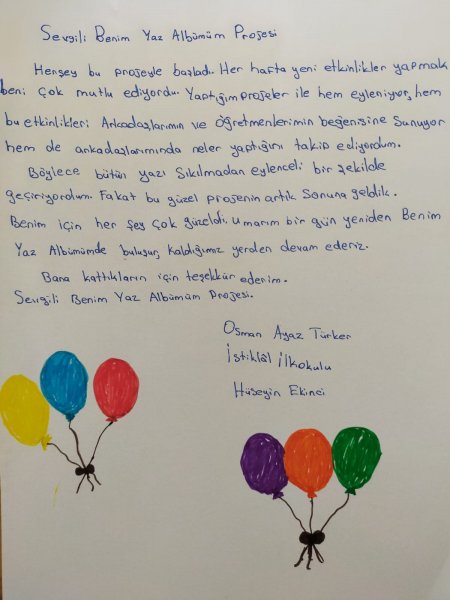 Sevgili Benim Yaz Albümüm Projesi
Herşey bu projeyle başladı. Her hafta yeni etkinlikler yapmak
beni çok mutlu ediyordu. Yaptığım projeler ile hem eyleniyor, hem
bu etkinlikleri Arkadaşlarımın ve Öğretmenlerimin beğenisine sunuyor
hem de arkadaşlarımında neler yaptığını takip ediyordum.
Böylece bütün yazı sıkılmadan eylenceli bir şekilde
geçiriyordum. Fakat bu güzel projenin artık sonuna geldik.
Benim için her şey çok güzeldi. Umarım bir gün yeniden Benim
Yaz Albümümde buluşur, kaldığımız yerden devam ederiz.
Bana kattıkların için teşekkür ederim.
Sevgili Benim Yaz Albümüm Projesi.
Osman Ayaz Türker
İstiklâl İlkokulu
Hüseyin Ekinci